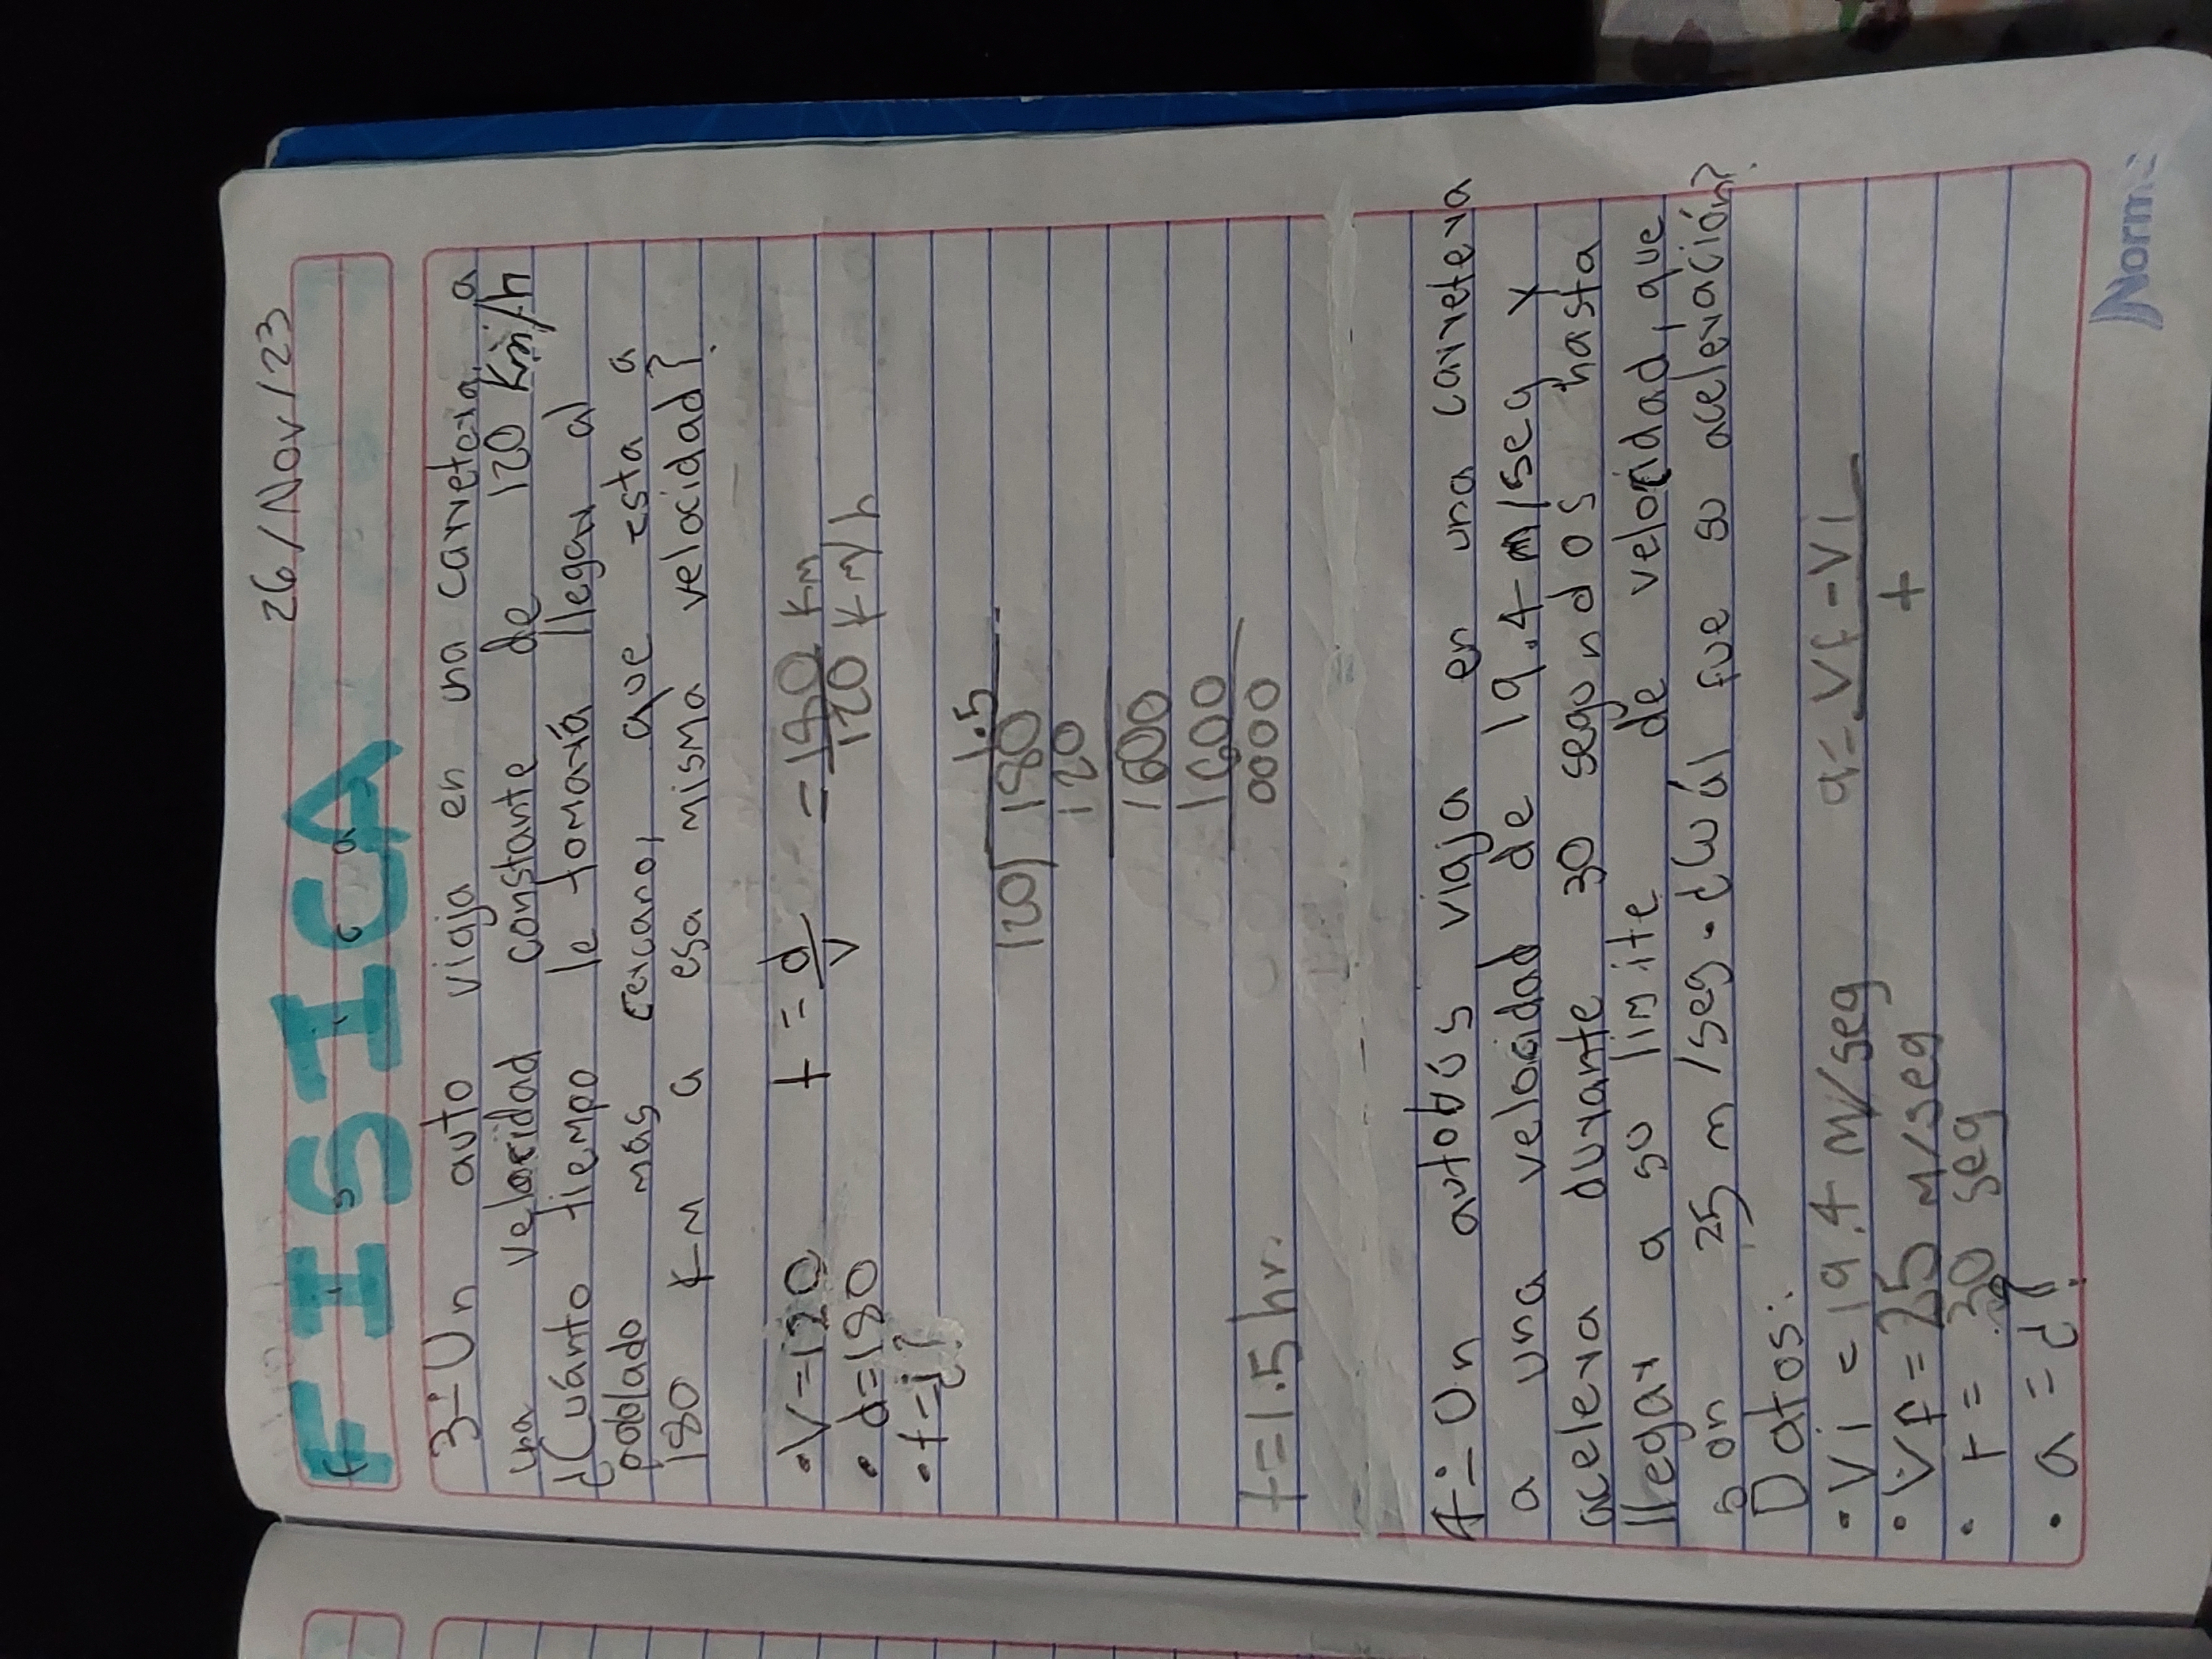 26/Nov/23
FISICA
Física
3.- Un auto viaja en una carretera, a
una velocidad constante de 120 Km/h
¿Cuánto tiempo le tomaría llegar al
poblado más cercano, que esta a
180 Km a esa misma velocidad?
• V=120 t = d/v = 180 Km / 120 Km/h
• d=180
• t=¿?
1.5
120 180
120
1600
1600
0000
t=1.5 hr.
4.- Un autobús viaja en una carretera
a una velocidad de 19.4 m/seg y
acelera durante 30 segundos hasta
llegar a su limite de velocidad, que
son 25 m/seg. ¿Cuál fue su aceleración?
Datos:
• Vi = 19.4 m/seg a = Vf - Vi / t
• Vf = 25 m/seg
• t = 30 seg
• a = ¿?
Norma